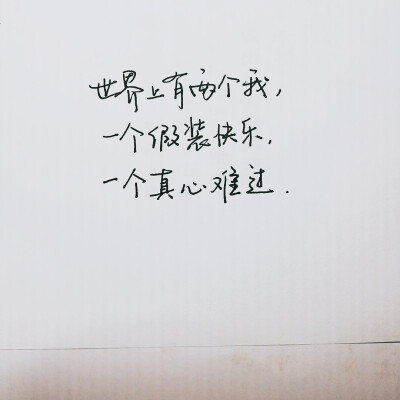 世界上有两个我，
一个假装快乐，
一个真心难过．